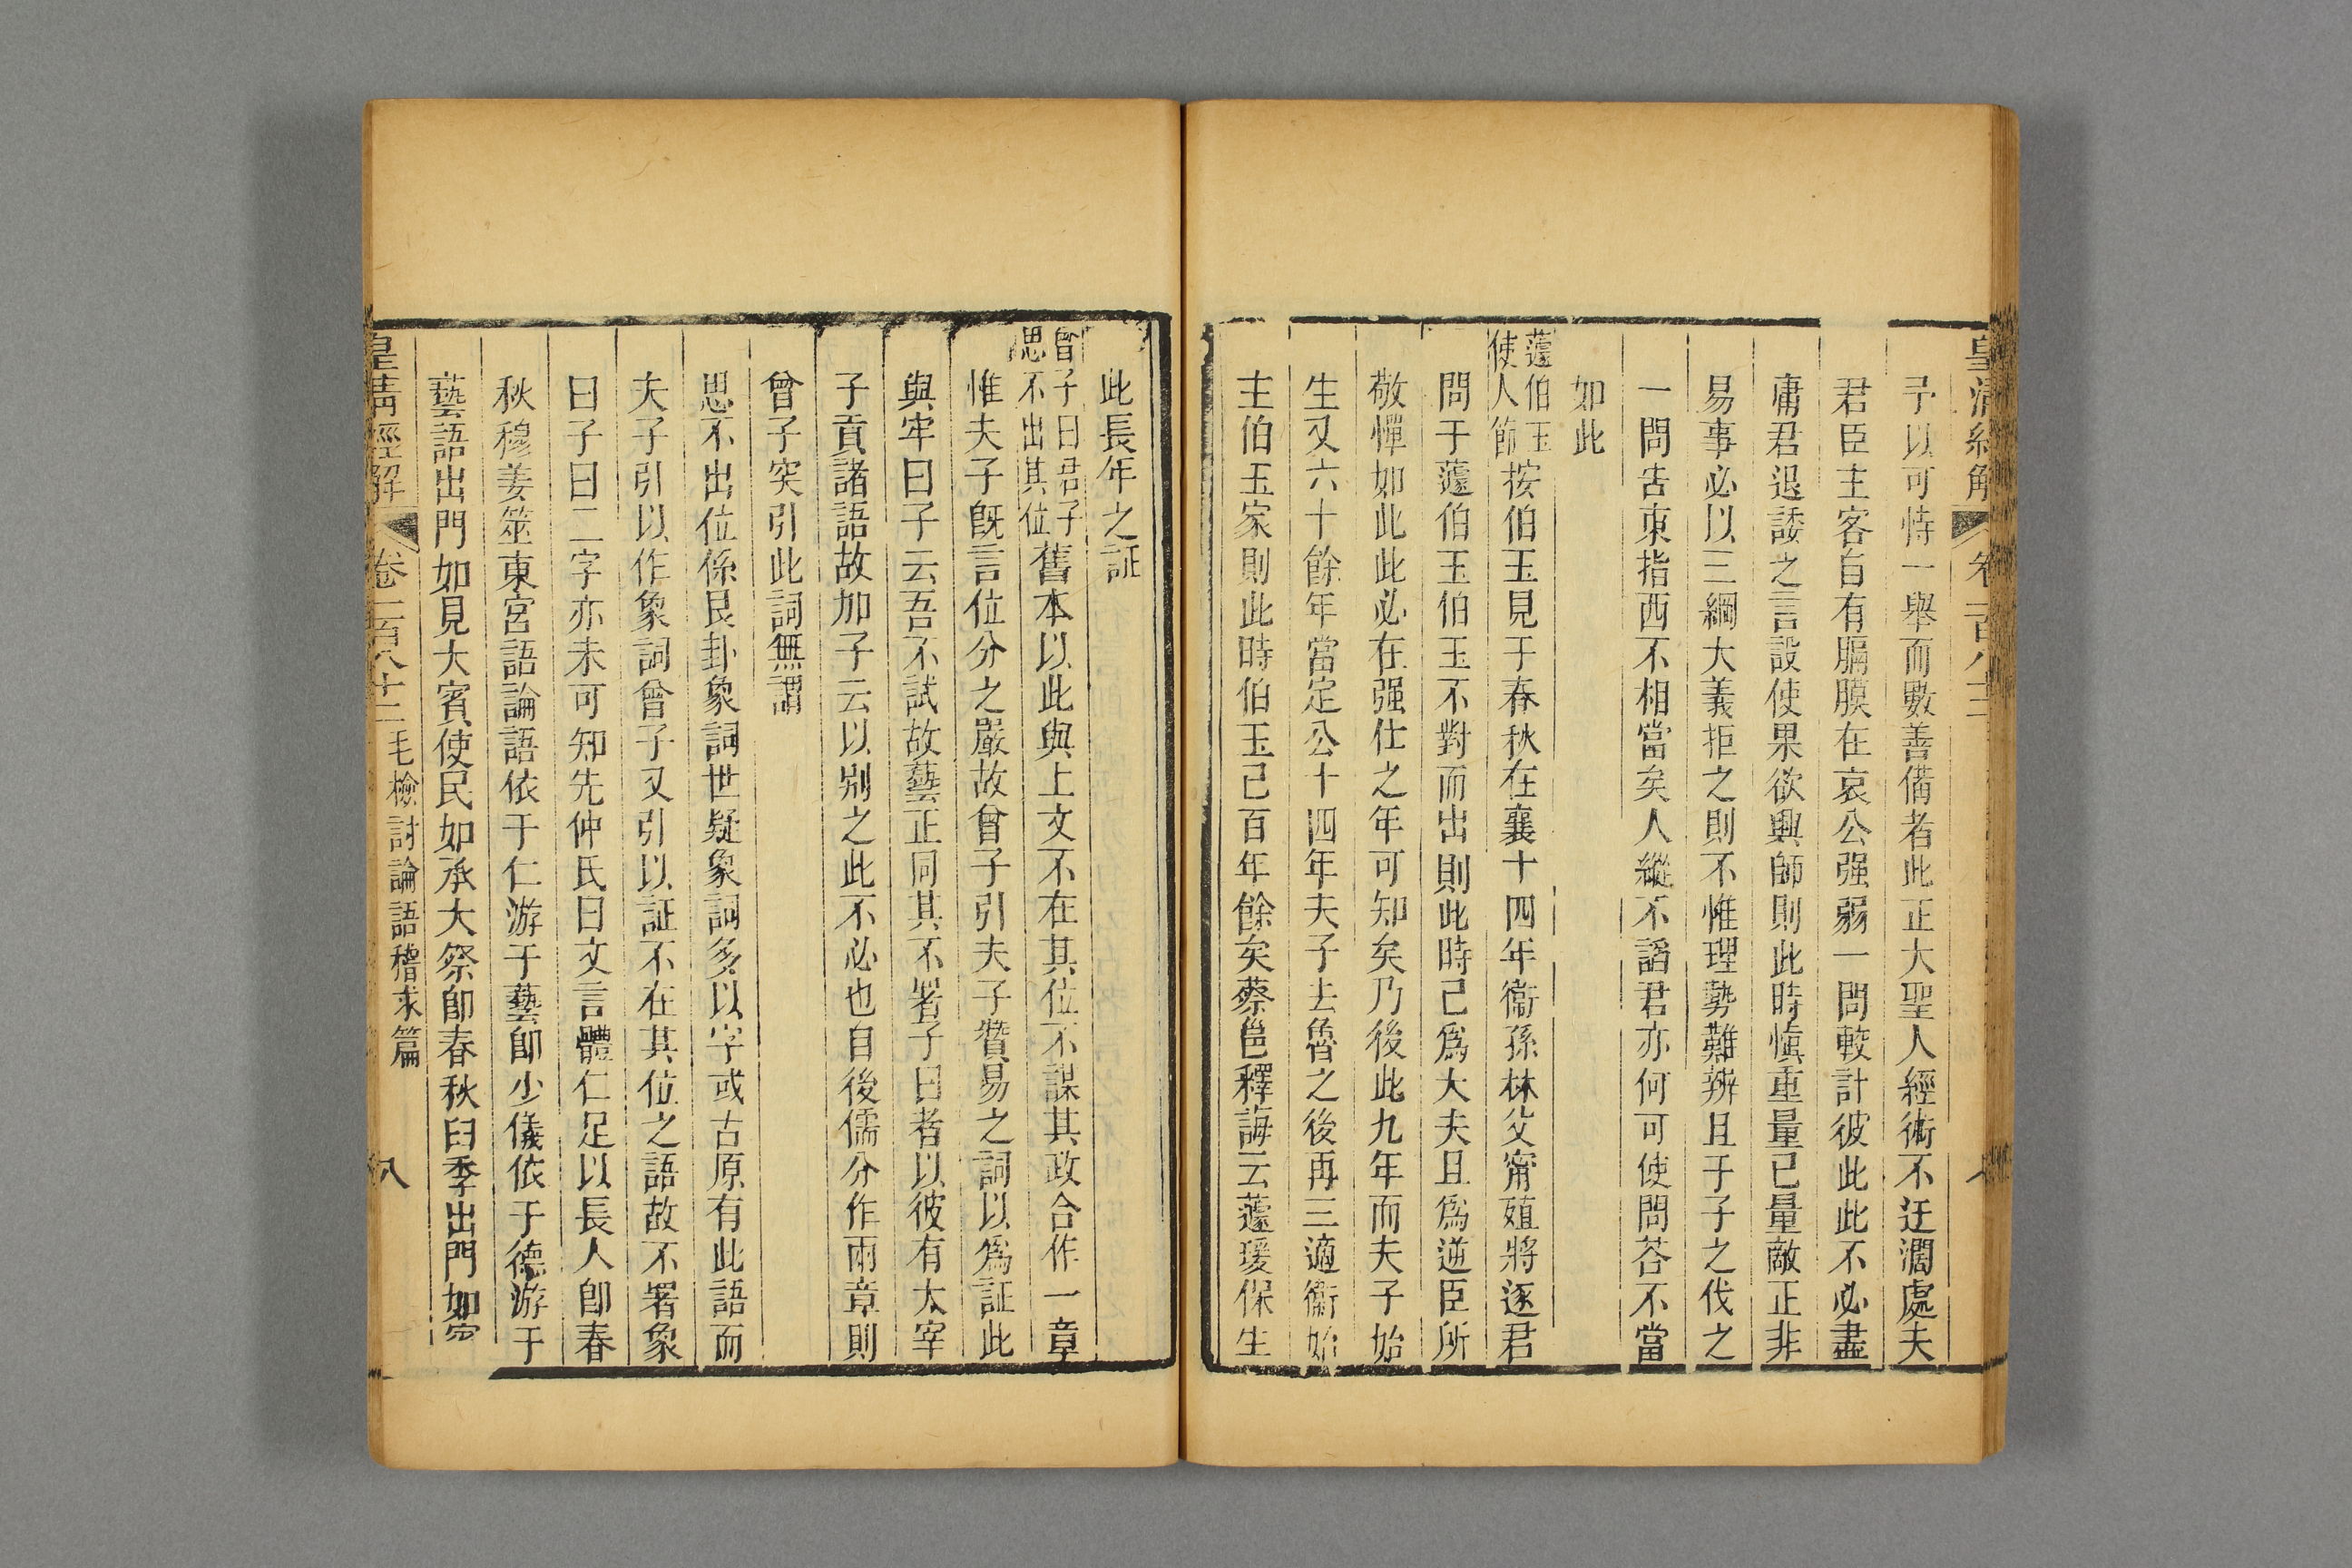 皇清經解 卷一百八十二 八
子以可恃一舉而數善備者此正大聖人經術不迂濶處夫
君臣主客自有膈膜在哀公强弱一問較計彼此此不必盡
庸君退諉之言設使果欲興師則此時愼重量已量敵正非
易事必以三綱大義拒之則不惟理勢難辨且于子之伐之
一問告東指西不相當矣人縱不謟君亦何可使問荅不當
如此
蘧伯玉
使人節
按伯玉見于春秋在襄十四年衞孫林父甯殖將逐君
問于蘧伯玉伯玉不對而出則此時己爲大夫且爲逆臣所
敬憚如此此必在强仕之年可知矣乃後此九年而夫子始
生又六十餘年當定公十四年夫子去魯之後再三適衞始
主伯玉家則此時伯玉己百年餘矣蔡邕釋誨云蘧瑗保生
此長年之証
曾子曰君子
思不出其位
舊本以此與上文不在其位不謀其政合作一章
惟夫子旣言位分之嚴故曾子引夫子贊易之詞以爲証此
與牢曰子云吾不試故藝正同其不署子曰者以彼有太宰
子貢諸語故加子云以别之此不必也自後儒分作兩章則
曾子突引此詞無謂
思不出位係艮卦象詞世疑象詞多以字或古原有此語而
夫子引以作象詞曾子又引以証不在其位之語故不署象
曰子曰二字亦未可知先仲氏曰文言體仁足以長人卽春
秋穆姜筮東宮語論語依于仁游于藝卽少儀依于德游于
藝語出門如見大賓使民如承大祭卽春秋臼季出門如賓
皇清經解 卷一百八十二 毛檢討論語稽求篇 八